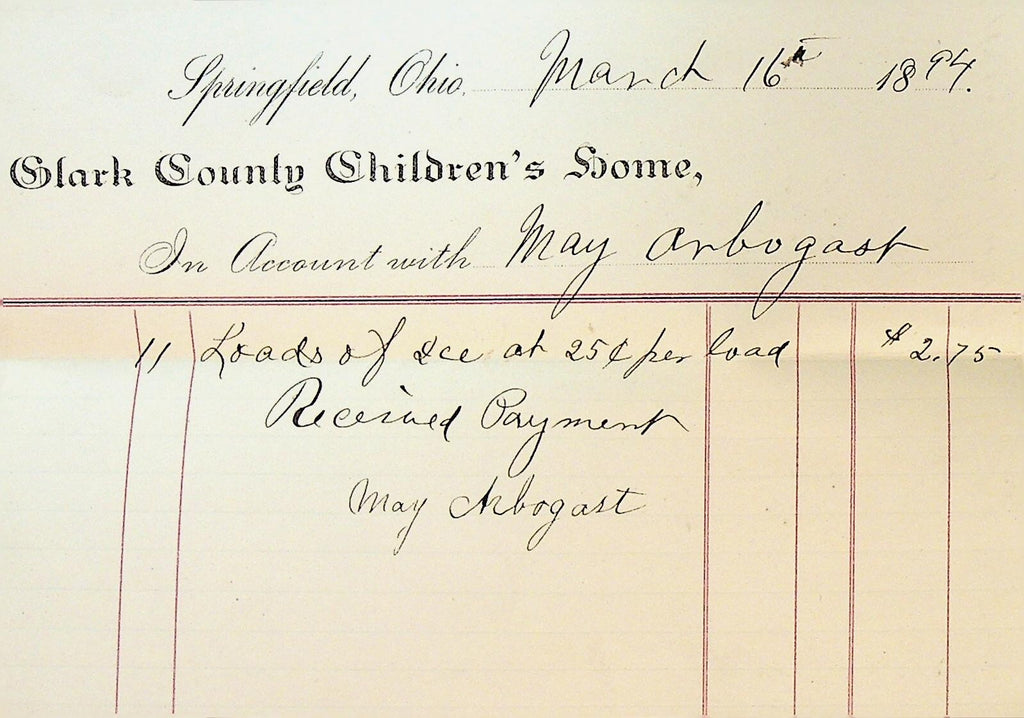 Springfield, Ohio. March 16th 1894.
Clark County Children's Home,
In Account with May Arbogast
11 Loads of Ice at 25¢ per load $2.75
Received Payment
May Arbogast